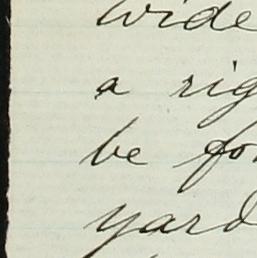 wide
a rig
be for
yard